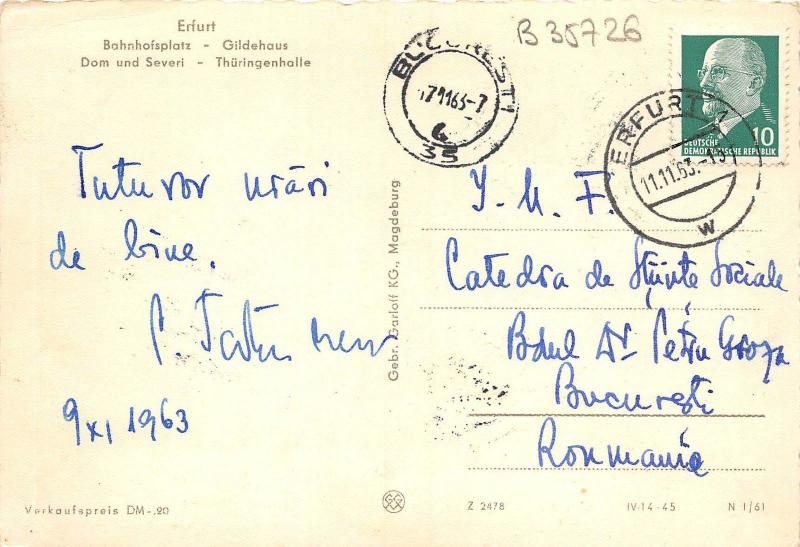 Erfurt
Bahnhofsplatz - Gildehaus
Dom und Severi - Thüringenhalle
B 35726
BUCUREȘTI
1163-7
35
DEUTSCHE
DEMOKRATISCHE REPUBLIK
10
ERFURT
11.11.63.
w
Tuturor urări
de bine.
9 XI 1963
Gebr. Garloff KG., Magdeburg
I. M. F.
Catedra de Științe Sociale
Bdul Dr Petru Groza
București
Romania
Verkaufspreis DM -,20
Z 2478
IV-14-45
N 1/61